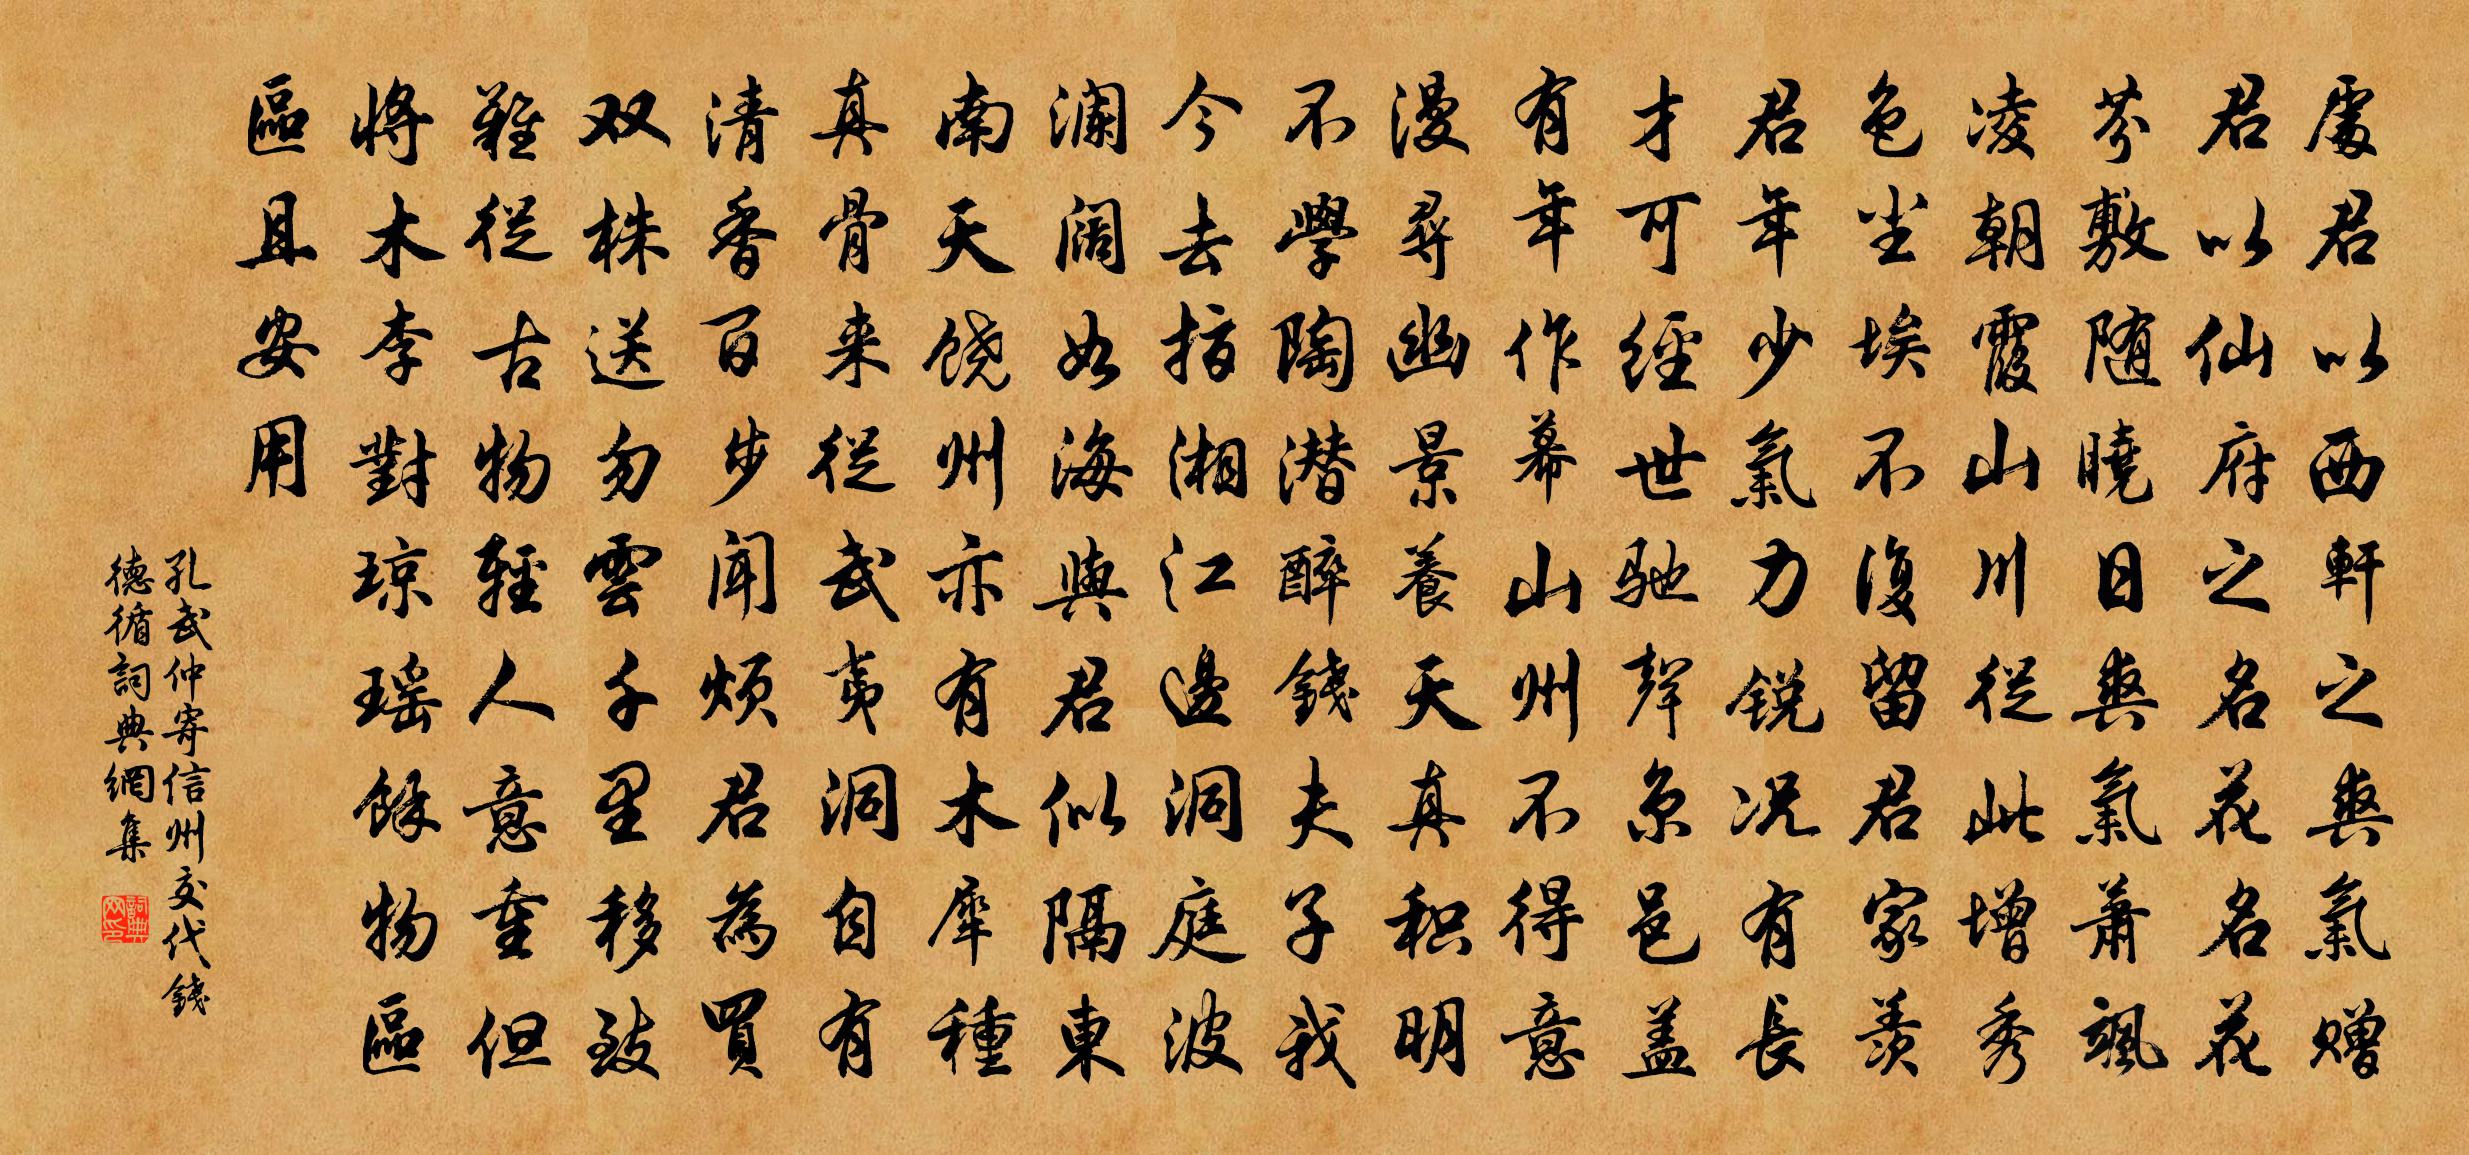 處君以西軒之爽氣贈
君以仙府之名花名花
芬敷随曉日爽氣蕭颯
凌朝霞山川從此增秀
色尘埃不復留君家羨
君年少氣力锐况有長
才可經世馳聲京邑盖
有年作幕山州不得意
漫尋幽景養天真积明
不學陶潜醉錢夫子我
今去指湘江邊洞庭波
澜阔如海與君似隔東
南天饶州亦有木犀種
真骨来從武夷洞自有
清香百步闻烦君為買
双株送勿雲千里移致
難從古物輕人意重但
将木李對琼瑶餘物區
區且安用
孔武仲寄信州交代錢
德循詞典網集
詞典网印